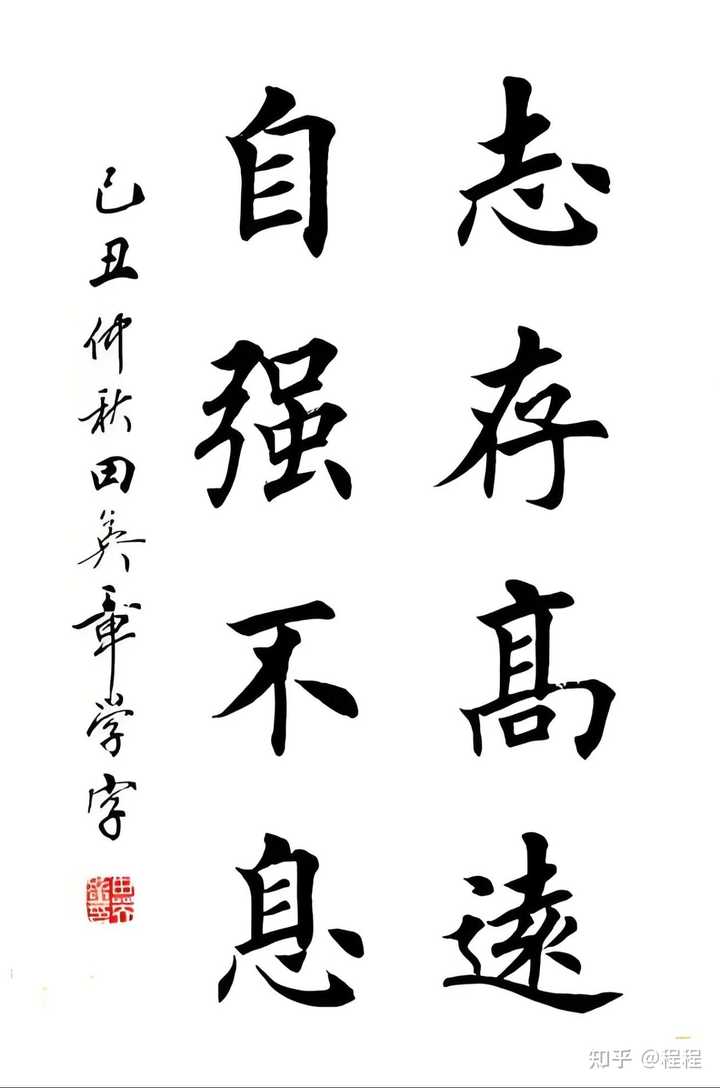 志存髙遠
自强不息
己丑仲秋田英章学字
知乎 @程程